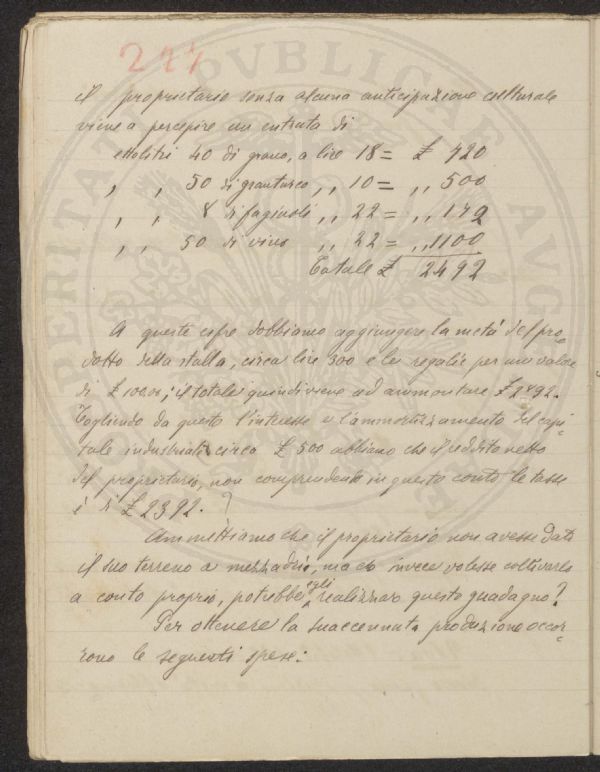 277
PVBLICAE
PERITAT
AVC
il proprietario senza alcuna anticipazione colturale
viene a percepire un entrata di
ettolitri 40 di grano, a lire 18 = £ 720
„ „ 50 di granturco „ „ 10 = „ 500
„ „ 8 di fagiuoli „ „ 22 = „ 172
„ „ 50 di vino „ 22 = „ 1100
Totale £ 2492
A queste cifre dobbiamo aggiungere la metà del pro-
dotto della stalla, circa lire 300 e le regalie per un valore
di £ 100.00; il totale quindi viene ad ammontare £ 2892.
Togliendo da questo l'interesse e l'ammortizzamento del capi-
tale industriale circa £ 500 abbiamo che il reddito netto
del proprietario, non comprendendo in questo conto le tasse
è di £ 2392. ?
Ammettiamo che il proprietario non avesse dato
il suo terreno a mezzadria, ma invece volesse coltivarlo
a conto proprio, potrebbe egli realizzare questo guadagno?
Per ottenere la suaccennata produzione occor-
rono le seguenti spese: